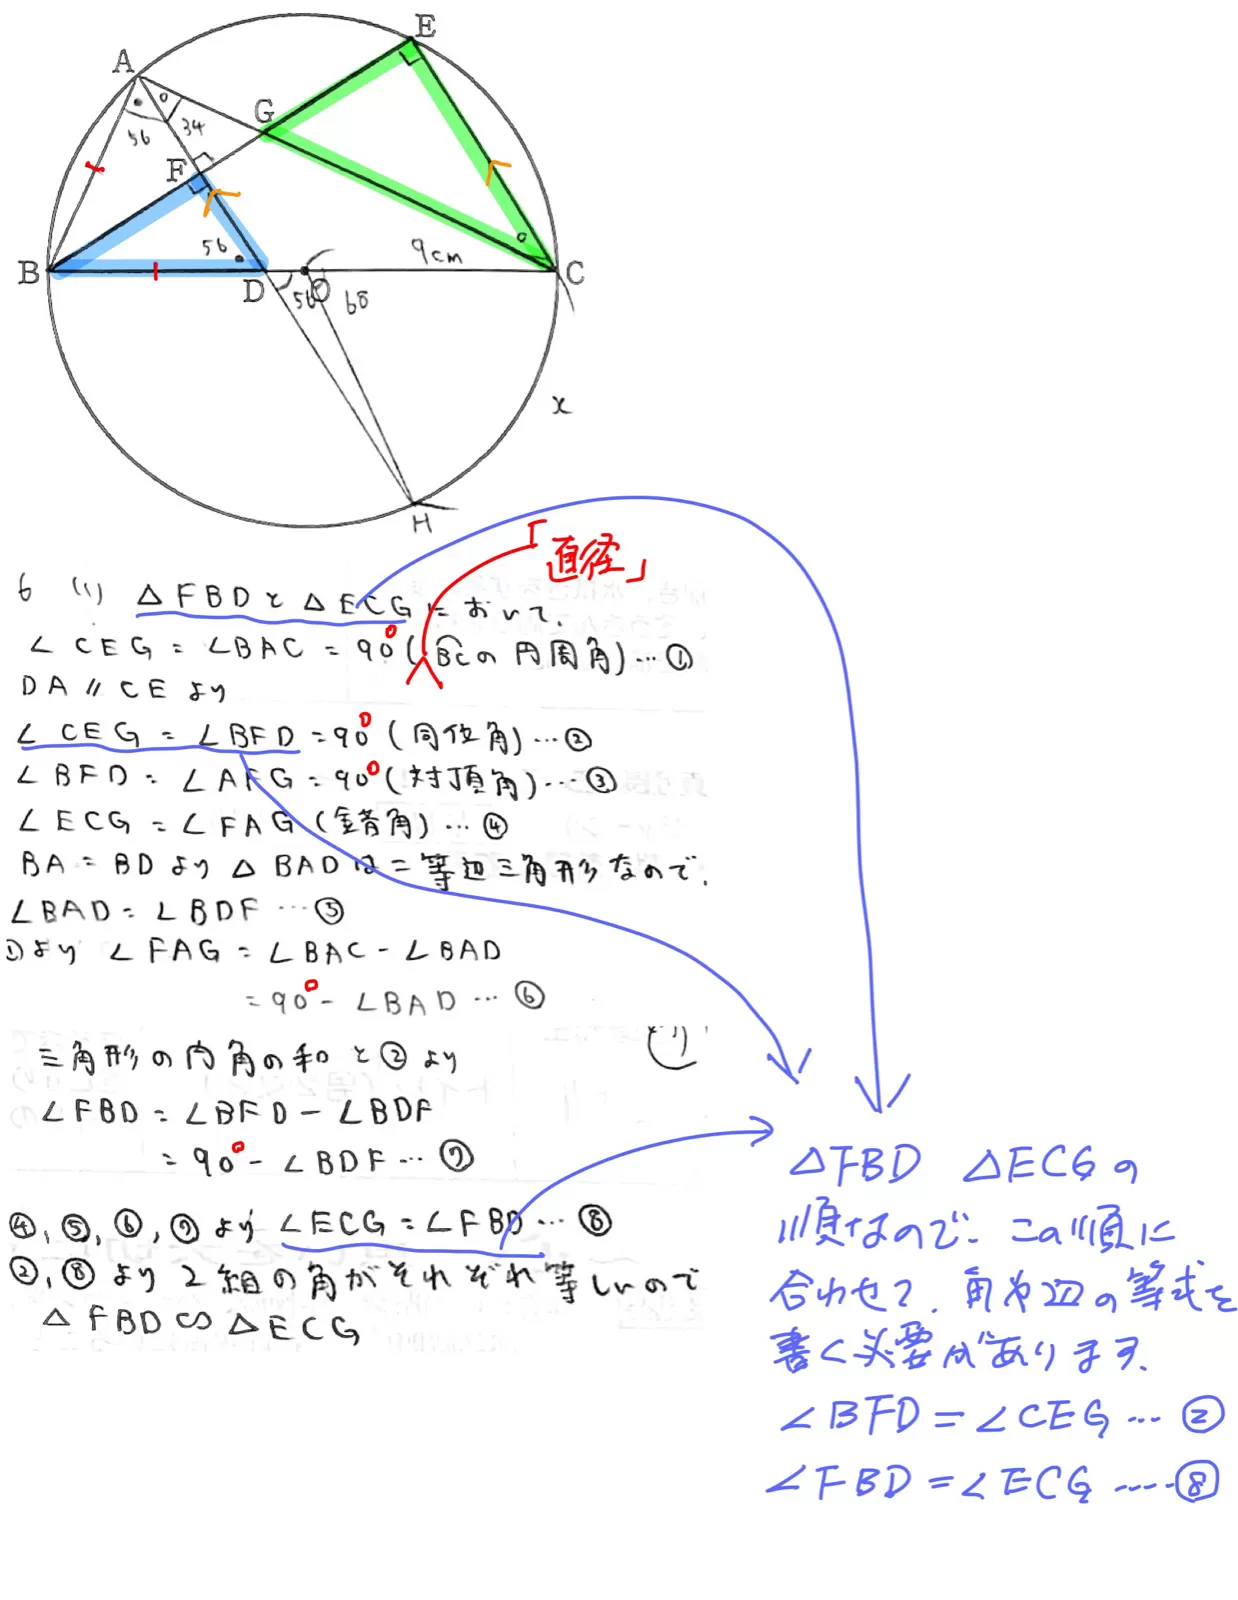 E
A
G
56
34
F
56
9cm
B
D
O
C
56
68
x
H
「直径」
6 (1) △FBDと△ECGにおいて、
∠CEG=∠BAC=90°(B͡Cの円周角)…①
DA//CEより
∠CEG=∠BFD=90°(同位角)…②
∠BFD=∠AFG=90°(対頂角)…③
∠ECG=∠FAG(錯角)…④
BA=BDより△BADは二等辺三角形なので、
∠BAD=∠BDF…⑤
①より ∠FAG=∠BAC-∠BAD
=90°-∠BAD…⑥
三角形の内角の和と②より
∠FBD=∠BFD-∠BDF
=90°-∠BDF…⑦
④,⑤,⑥,⑦より∠ECG=∠FBD…⑧
②,⑧より2組の角がそれぞれ等しいので
△FBD∽△ECG
△FBD △ECGの
順なので、この順に
合わせて、角や辺の等式を
書く必要があります。
∠BFD=∠CEG…②
∠FBD=∠ECG……⑧